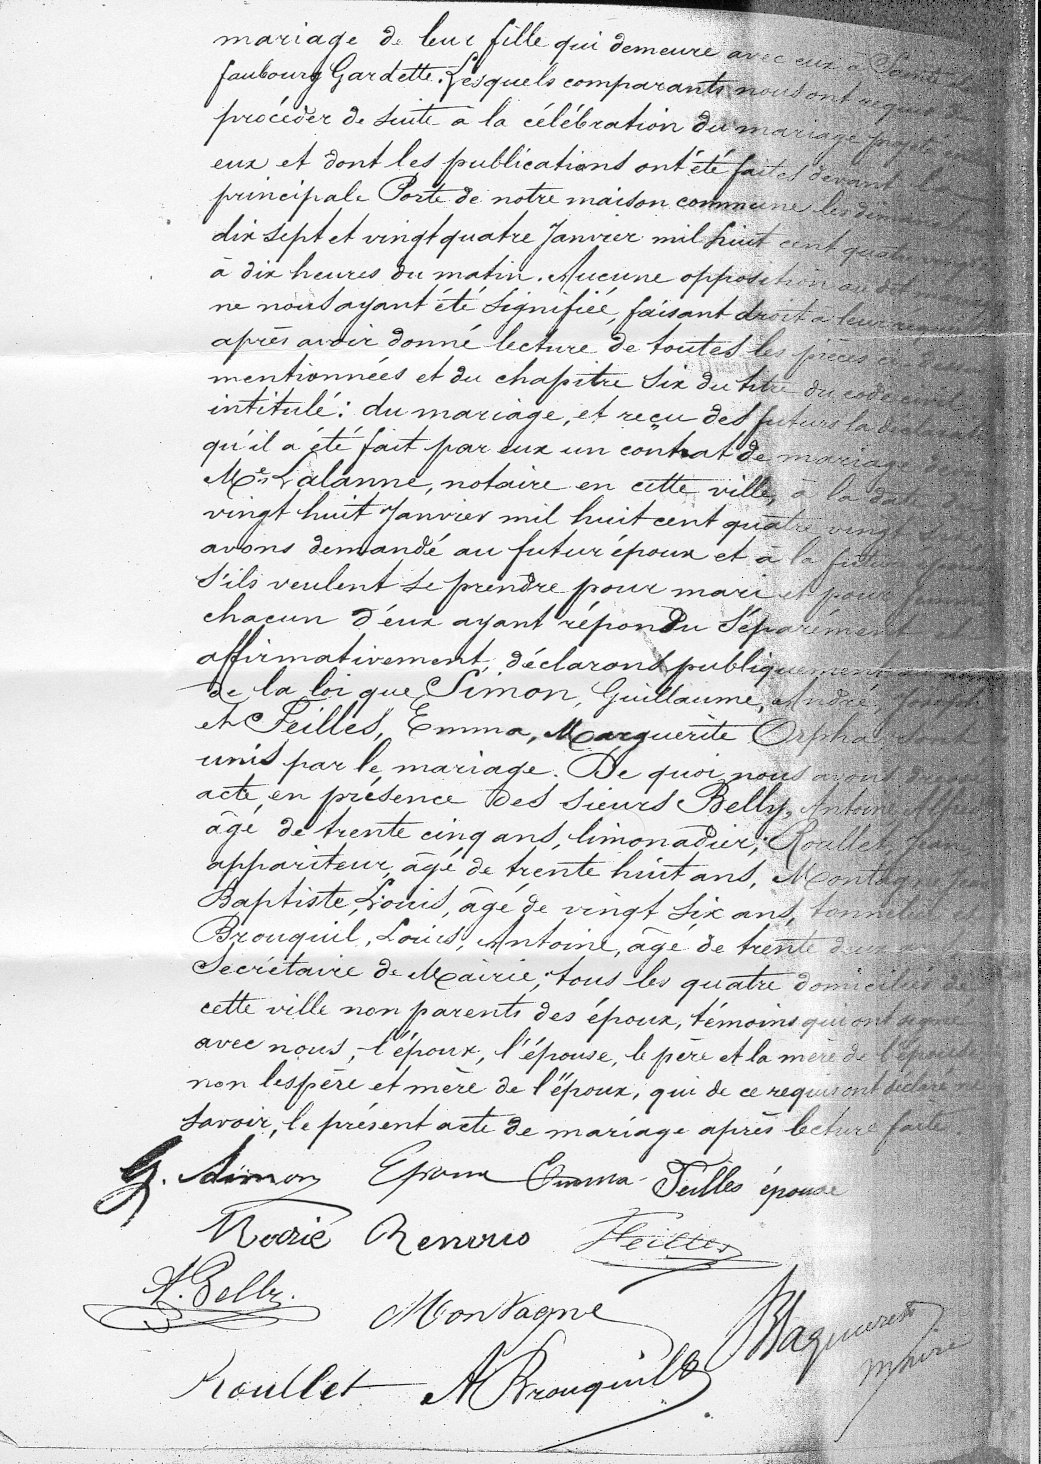 mariage de leur fille qui demeure avec eux a
faubourg Gardette. Lesquels comparants nous ont requis de
procéder de suite a la célébration du mariage projeté
eux et dont les publications ont été faites devant la
principale Porte de notre maison commune les
dix sept et vingt quatre Janvier mil huit cent quatre vingt
à dix heures du matin. Aucune opposition au dit
ne nous ayant été signifiée, faisant droit a leur
après avoir donné lecture de toutes les pièces ci dessus
mentionnées et du chapitre six du titre du code civil
intitulé: du mariage, et reçu des futurs la
qu'il a été fait par eux un contrat de mariage
Me Lalanne, notaire en cette ville, à la date
vingt huit Janvier mil huit cent quatre vingt
avons demandé au futur époux et à la future épouse
s'ils veulent se prendre pour mari et pour femme
chacun d'eux ayant répondu séparément et
affirmativement, déclarons publiquement au nom
de la loi que Simon, Guillaume, André, Joseph
et Feilles, Emma, Marguerite Orpha, sont
unis par le mariage. De quoi nous avons dressé
acte, en présence des sieurs Belly, Antoine
âgé de trente cinq ans, limonadier; Roullet, Jean
appariteur, âgé de trente huit ans, Montagne,
Baptiste, Louis, âgé de vingt six ans, tonnelier
Brouquil, Louis, Antoine, âgé de trente deux ans
Secrétaire de Mairie; tous les quatre domiciliés de
cette ville non parents des époux, témoins qui ont signé
avec nous, l'époux, l'épouse, le père et la mère de l'épouse
non les père et mère de l'époux, qui de ce requis ont déclaré ne
savoir, le présent acte de mariage après lecture faite
G. Simon Epoux Emma Feilles épouse
Marie Feilles
A. Belly.
Montagne maire
Roullet A Brouquil